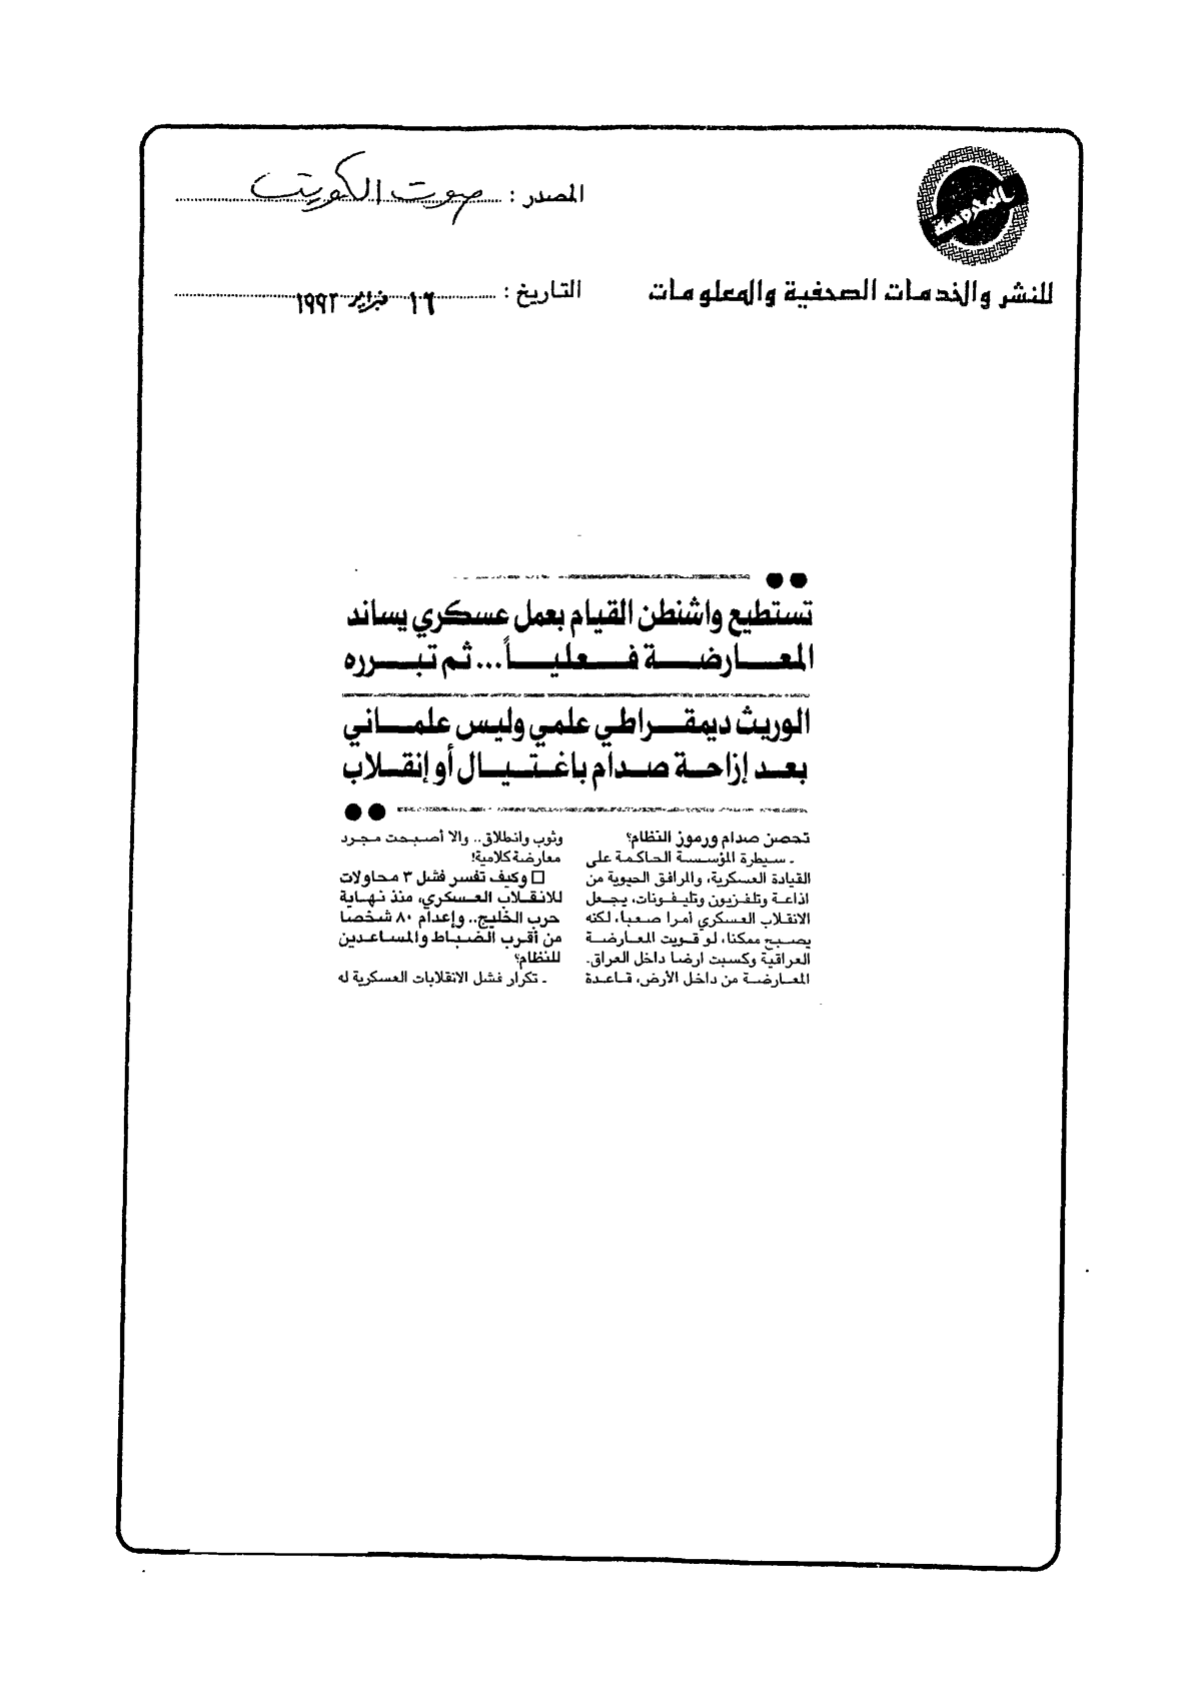 المصدر : صوت الكويت
للنشر والخدمات الصحفية والمعلومات
التاريخ : ١٦ فبراير ١٩٩٢
تستطيع واشنطن القيام بعمل عسكري يساند
المعارضة فعلياً... ثم تبرره
الوريث ديمقراطي علمي وليس علماني
بعد إزاحة صدام باغتيال أو إنقلاب
تحصن صدام ورموز النظام؟
ـ سيطرة المؤسسة الحاكمة على
القيادة العسكرية، والمرافق الحيوية من
اذاعة وتلفزيون وتليفونات، يجعل
الانقلاب العسكري أمرا صعبا، لكنه
يصبح ممكنا، لو قويت المعارضة
العراقية وكسبت ارضا داخل العراق.
المعارضة من داخل الأرض، قاعدة
وثوب وانطلاق.. والا أصبحت مجرد
معارضة كلامية!
□ وكيف تفسر فشل ٣ محاولات
للانقلاب العسكري، منذ نهاية
حرب الخليج.. وإعدام ٨٠ شخصا
من أقرب الضباط والمساعدين
للنظام؟
ـ تكرار فشل الانقلابات العسكرية له